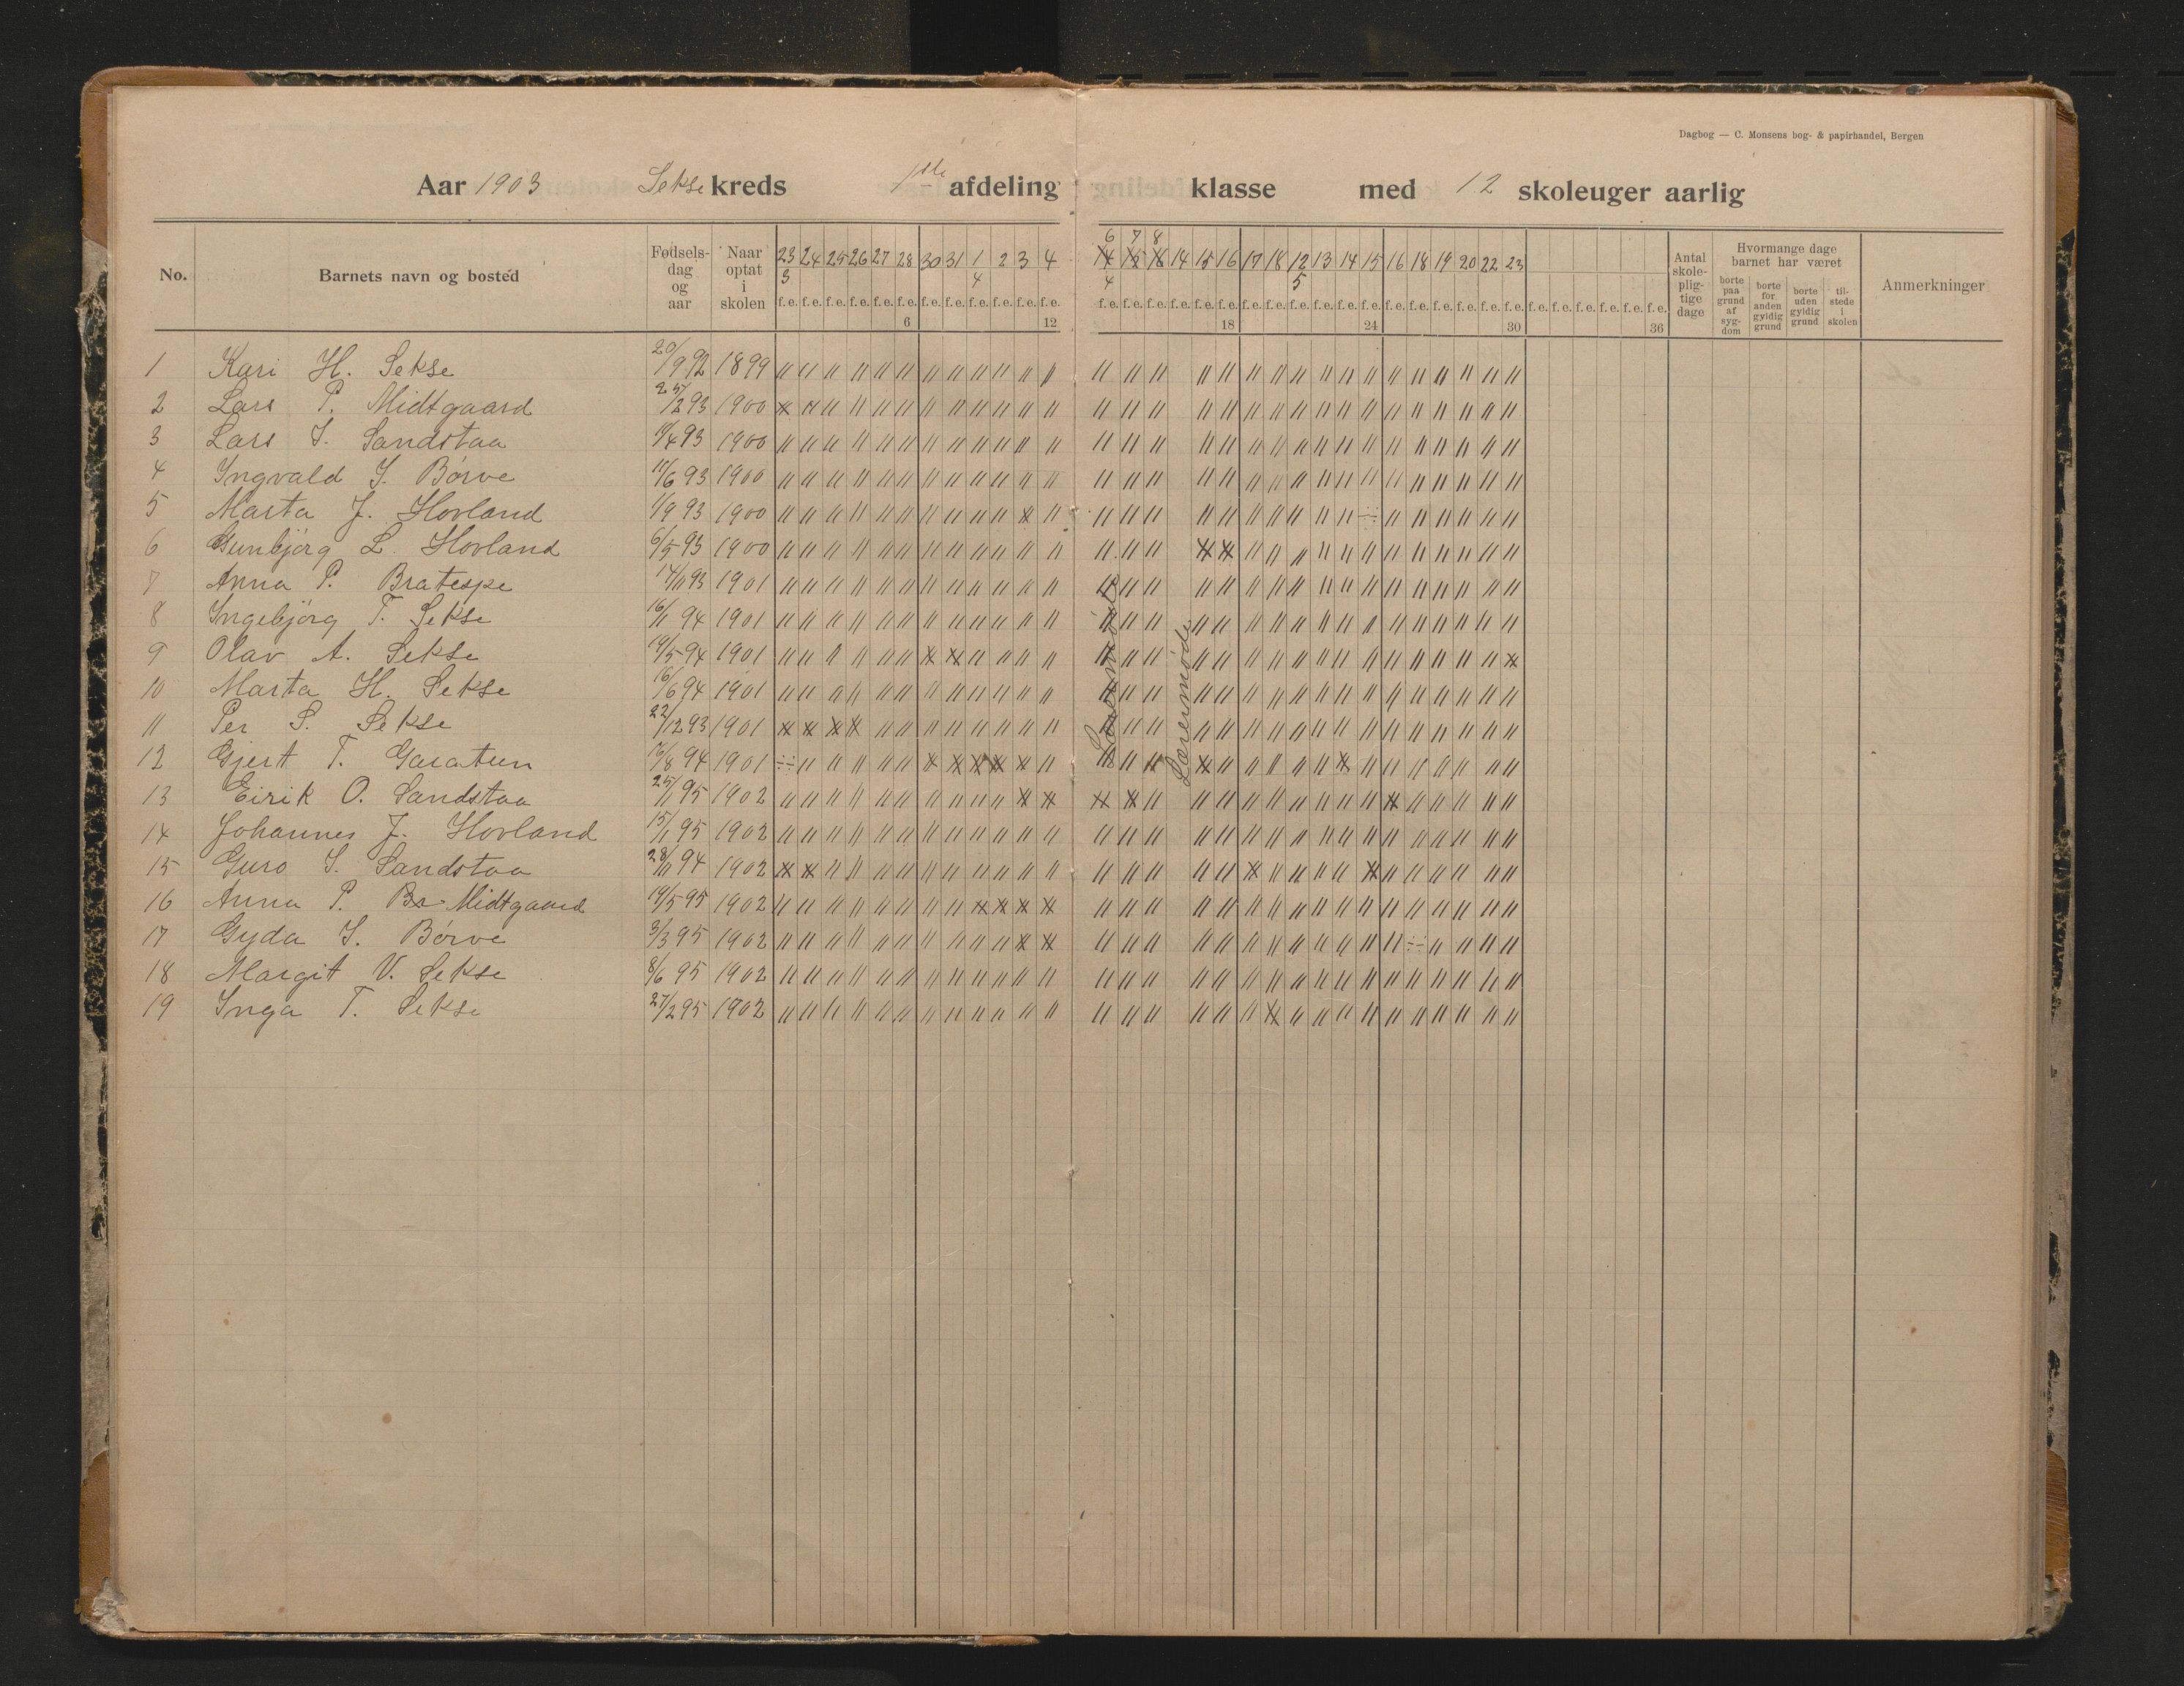 Dagbog — C. Monsens bog- & papirhandel, Bergen
Aar 1903 Sekse kreds 1ste afdeling klasse med 12 skoleuger aarlig
No. Barnets navn og bosted Fødsels-dag og aar Naar optat i skolen 23 24 25 26 27 28 30 31 1 2 3 4 6 7 8 14 15 16 17 18 12 13 14 15 16 18 19 20 22 23 Antal skole-plig-tige dage Hvormange dage barnet har været Anmerkninger
3 4 4 5
borte paa grund af syg-dom borte for anden gyldig grund borte uden gyldig grund til-stede i skolen
f.e. f.e. f.e. f.e. f.e. f.e. f.e. f.e. f.e. f.e. f.e. f.e. f.e. f.e. f.e. f.e. f.e. f.e. f.e. f.e. f.e. f.e. f.e. f.e. f.e. f.e. f.e. f.e. f.e. f.e. f.e. f.e. f.e. f.e. f.e. f.e.
6 12 18 24 30 36
1 Kari H. Sekse 20/9 92 1899
2 Lars P. Midtgaard 25/2 93 1900
3 Lars S. Sandstaa /4 93 1900
4 Ingvald S. Børve 17/6 93 1900
5 Marta J. Hovland 1/9 93 1900
6 Gunbjörg L. Hovland 6/5 93 1900
7 Anna P. Bratespe 14/11 93 1901
8 Ingebjörg T. Sekse 16/11 94 1901
9 Olav A. Sekse 14/5 94 1901
10 Marta H. Sekse 16/6 94 1901
11 Per S. Sekse 22/12 93 1901
12 Gjert T. Garatun 16/8 94 1901
13 Eirik O. Sandstaa 25/11 95 1902
14 Johannes J. Hovland 15/1 95 1902
15 Guro S. Sandstaa 28/11 94 1902
16 Anna P. Br Midtgaard 14/5 95 1902
17 Gyda S. Børve 3/3 95 1902
18 Margit V. Sekse 8/6 95 1902
19 Inga T. Sekse 27/2 95 1902
Lærermøde